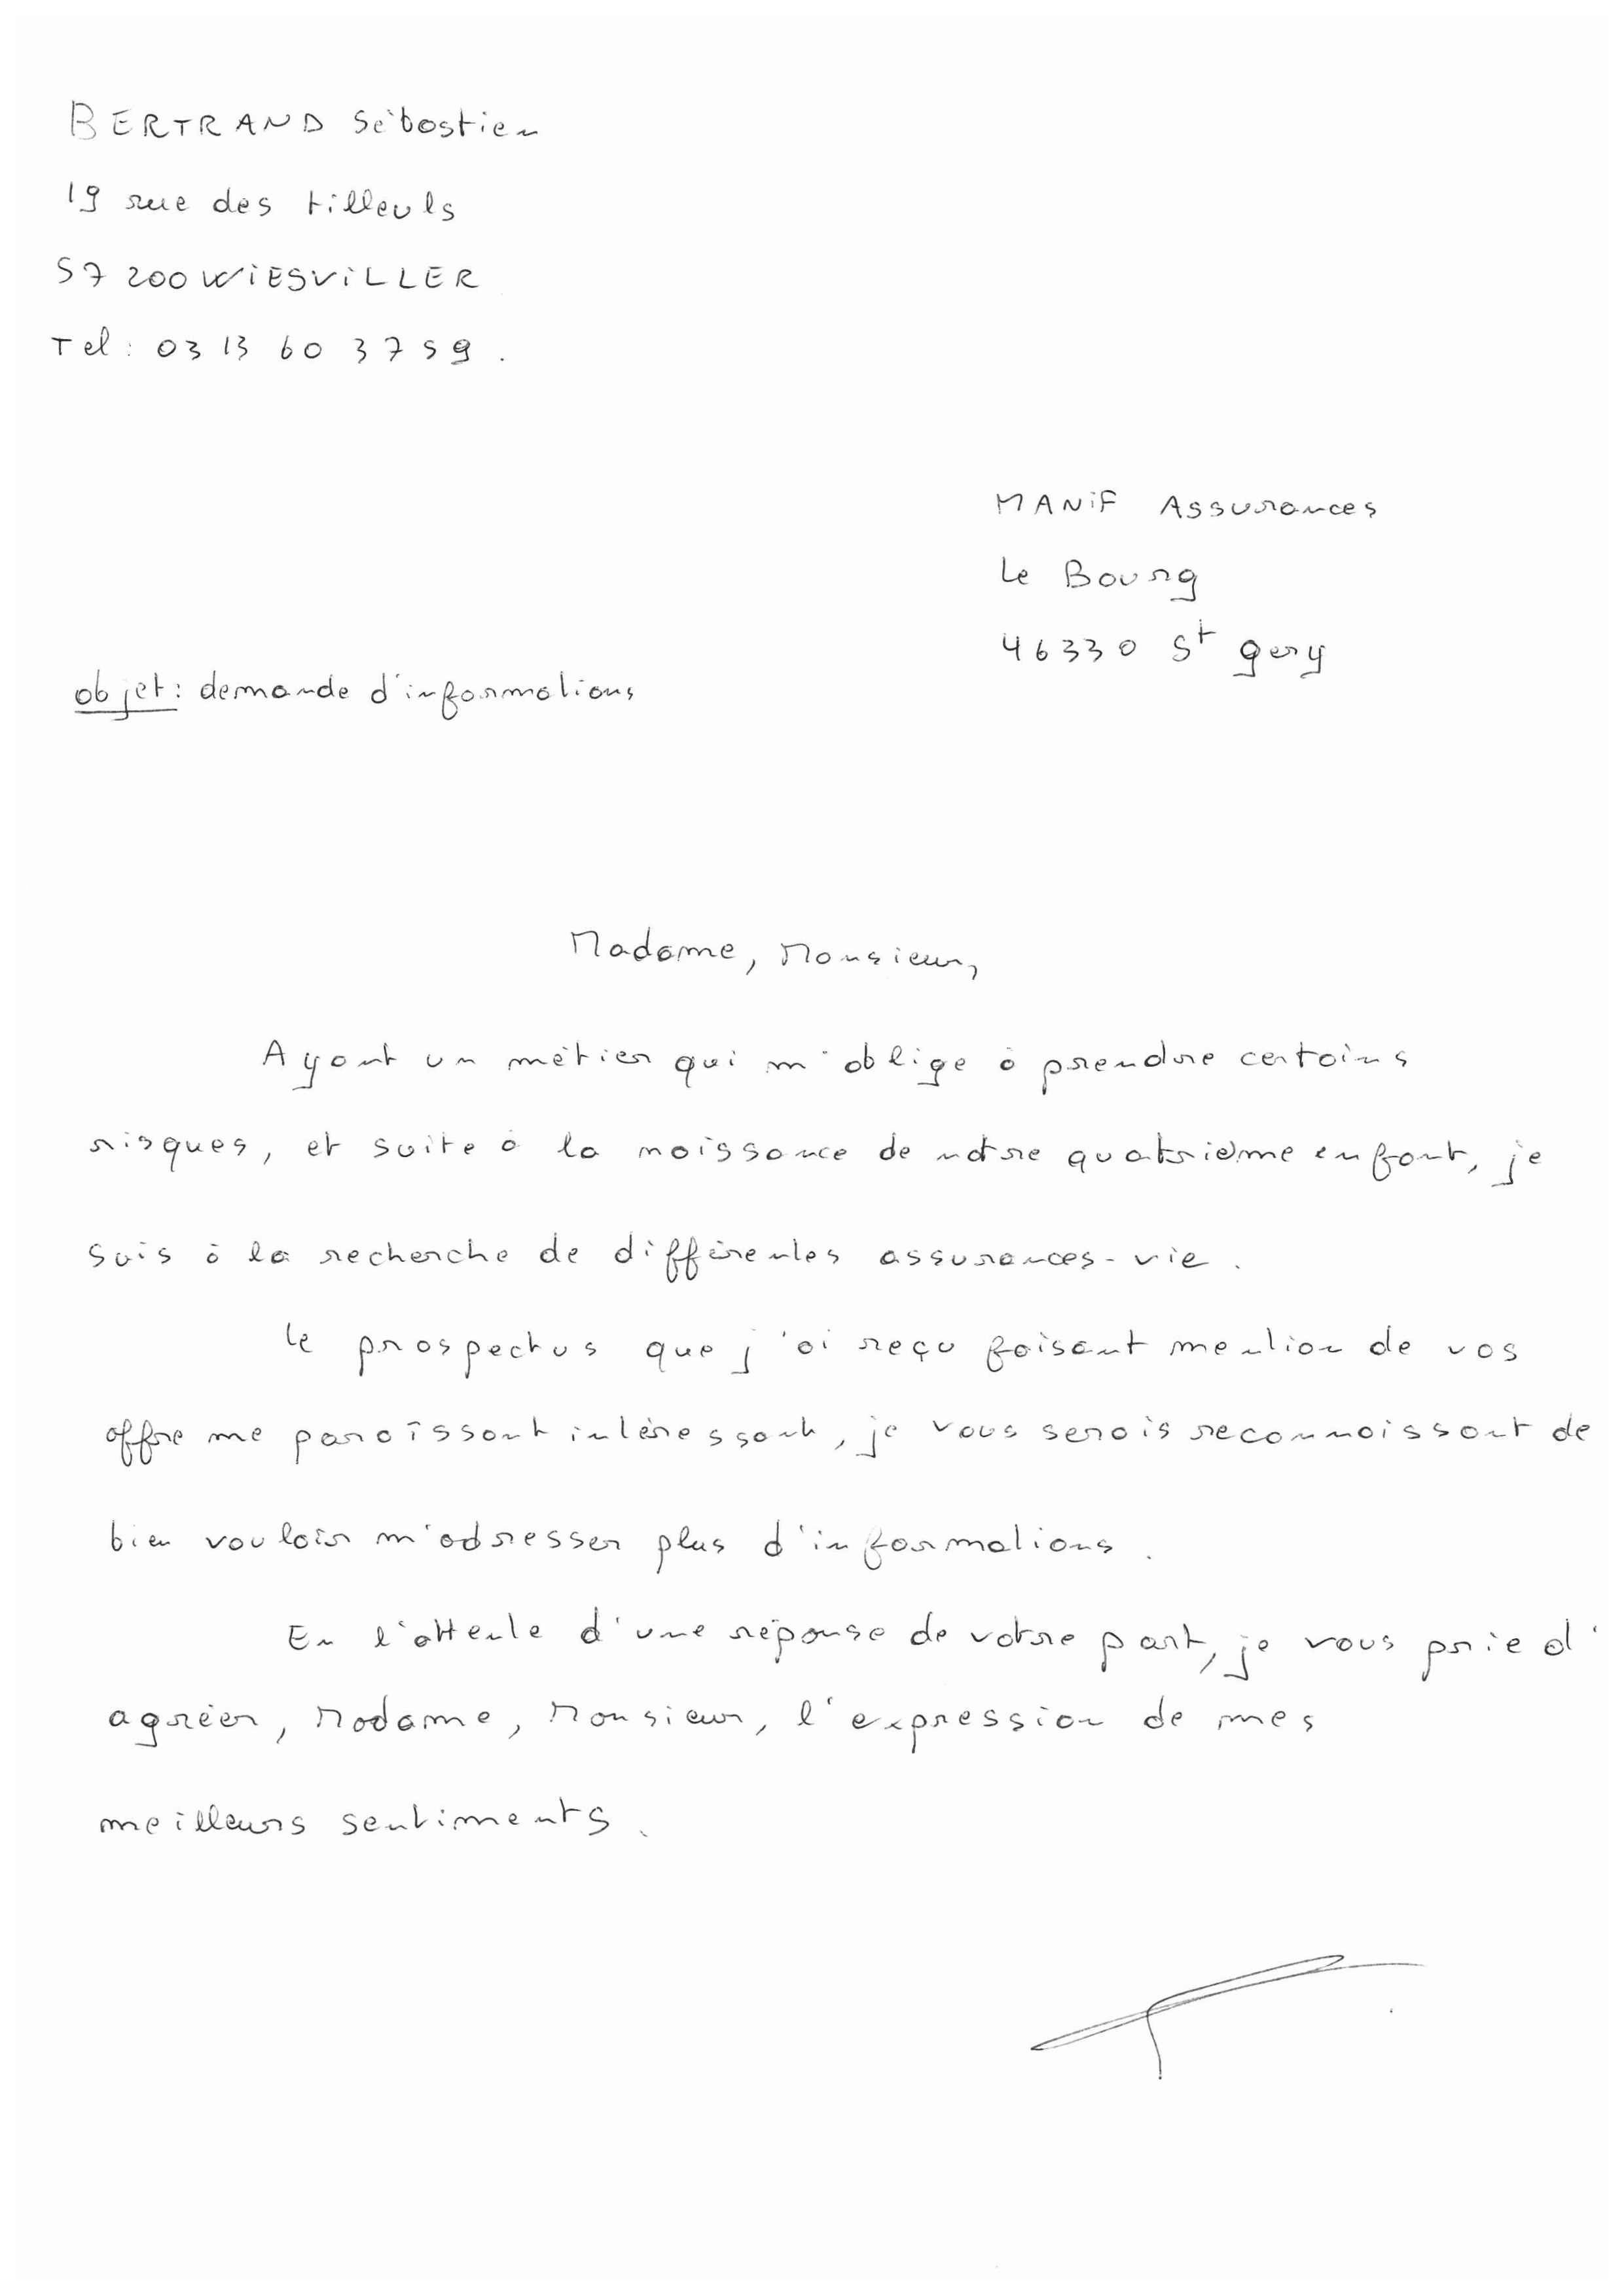 BERTRAND Sébastien
19 rue des tilleuls
57 200 WIESVILLER
Tel : 03 13 60 37 59.
MANIF Assurances
Le Bourg
46330 St gery
objet : demande d'informations
Madame, Monsieur,
Ayant un métier qui m'oblige à prendre certains
risques, et suite à la naissance de notre quatrième enfant, je
suis à la recherche de différentes assurances-vie.
Le prospectus que j'ai reçu faisant mention de vos
offre me paraîssant intéressant, je vous serais reconnaissant de
bien vouloir m'adresser plus d'informations.
En l'attente d'une réponse de votre part, je vous prie d'
agréer, Madame, Monsieur, l'expression de mes
meilleurs sentiments.